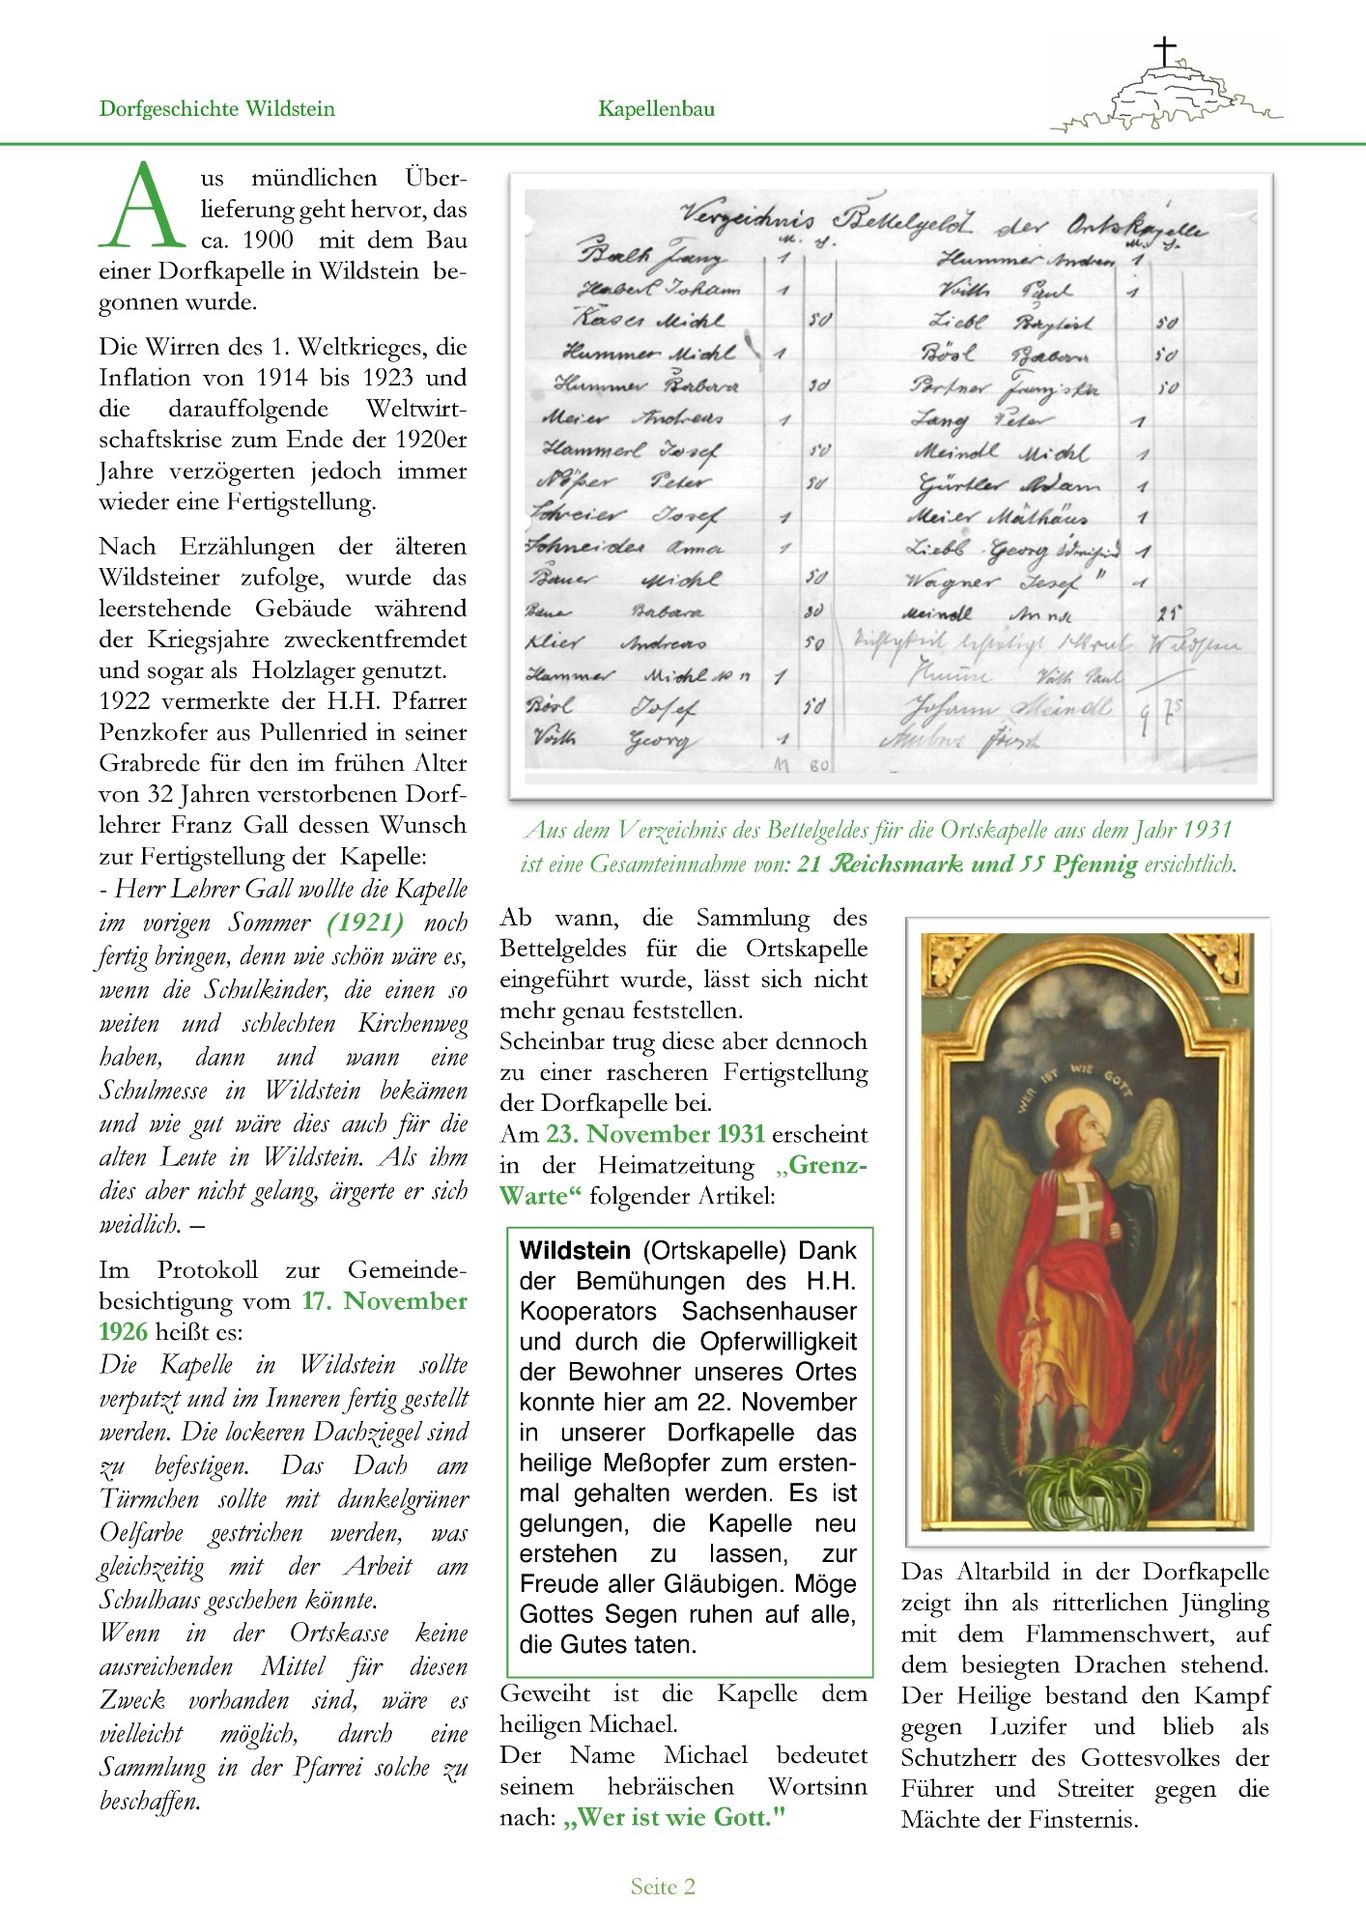 Dorfgeschichte Wildstein
Kapellenbau
Aus mündlichen Über-
lieferung geht hervor, das
ca. 1900 mit dem Bau
einer Dorfkapelle in Wildstein be-
gonnen wurde.
Die Wirren des 1. Weltkrieges, die
Inflation von 1914 bis 1923 und
die darauffolgende Weltwirt-
schaftskrise zum Ende der 1920er
Jahre verzögerten jedoch immer
wieder eine Fertigstellung.
Nach Erzählungen der älteren
Wildsteiner zufolge, wurde das
leerstehende Gebäude während
der Kriegsjahre zweckentfremdet
und sogar als Holzlager genutzt.
1922 vermerkte der H.H. Pfarrer
Penzkofer aus Pullenried in seiner
Grabrede für den im frühen Alter
von 32 Jahren verstorbenen Dorf-
lehrer Franz Gall dessen Wunsch
zur Fertigstellung der Kapelle:
- Herr Lehrer Gall wollte die Kapelle
im vorigen Sommer (1921) noch
fertig bringen, denn wie schön wäre es,
wenn die Schulkinder, die einen so
weiten und schlechten Kirchenweg
haben, dann und wann eine
Schulmesse in Wildstein bekämen
und wie gut wäre dies auch für die
alten Leute in Wildstein. Als ihm
dies aber nicht gelang, ärgerte er sich
weidlich. –
Im Protokoll zur Gemeinde-
besichtigung vom 17. November
1926 heißt es:
Die Kapelle in Wildstein sollte
verputzt und im Inneren fertig gestellt
werden. Die lockeren Dachziegel sind
zu befestigen. Das Dach am
Türmchen sollte mit dunkelgrüner
Oelfarbe gestrichen werden, was
gleichzeitig mit der Arbeit am
Schulhaus geschehen könnte.
Wenn in der Ortskasse keine
ausreichenden Mittel für diesen
Zweck vorhanden sind, wäre es
vielleicht möglich, durch eine
Sammlung in der Pfarrei solche zu
beschaffen.
Verzeichnis Bettelgeld der Ortskapelle
Balk Franz 1 Hummer Andreas 1
Haberl Johann 1 Voith Paul 1
Käser Michl 50 Liebl Baptist 50
Hummer Michl 1 Bösl Barbara 50
Hummer Barbara 30 Portner Franziska 50
Meier Andreas 1 Lang Peter 1
Hammerl Josef 50 Meindl Michl 1
Nößer Peter 50 Gürtler Adam 1
Schreier Josef 1 Meier Mäthäus 1
Schneider Anna 1 Liebl Georg 1
Bauer Michl 50 Wagner Josef " 1
Bauer Barbara 30 Meindl Anna 25
Klier Andreas 50
Hammer Michl 1 Voith Paul
Bösl Josef 50 Johann Meindl 9 75
Voith Georg 1
11 80
Aus dem Verzeichnis des Bettelgeldes für die Ortskapelle aus dem Jahr 1931
ist eine Gesamteinnahme von: 21 Reichsmark und 55 Pfennig ersichtlich.
Ab wann, die Sammlung des
Bettelgeldes für die Ortskapelle
eingeführt wurde, lässt sich nicht
mehr genau feststellen.
Scheinbar trug diese aber dennoch
zu einer rascheren Fertigstellung
der Dorfkapelle bei.
Am 23. November 1931 erscheint
in der Heimatzeitung „Grenz-
Warte“ folgender Artikel:
Wildstein (Ortskapelle) Dank
der Bemühungen des H.H.
Kooperators Sachsenhauser
und durch die Opferwilligkeit
der Bewohner unseres Ortes
konnte hier am 22. November
in unserer Dorfkapelle das
heilige Meßopfer zum ersten-
mal gehalten werden. Es ist
gelungen, die Kapelle neu
erstehen zu lassen, zur
Freude aller Gläubigen. Möge
Gottes Segen ruhen auf alle,
die Gutes taten.
Geweiht ist die Kapelle dem
heiligen Michael.
Der Name Michael bedeutet
seinem hebräischen Wortsinn
nach: „Wer ist wie Gott."
WER IST WIE GOTT
Das Altarbild in der Dorfkapelle
zeigt ihn als ritterlichen Jüngling
mit dem Flammenschwert, auf
dem besiegten Drachen stehend.
Der Heilige bestand den Kampf
gegen Luzifer und blieb als
Schutzherr des Gottesvolkes der
Führer und Streiter gegen die
Mächte der Finsternis.
Seite 2